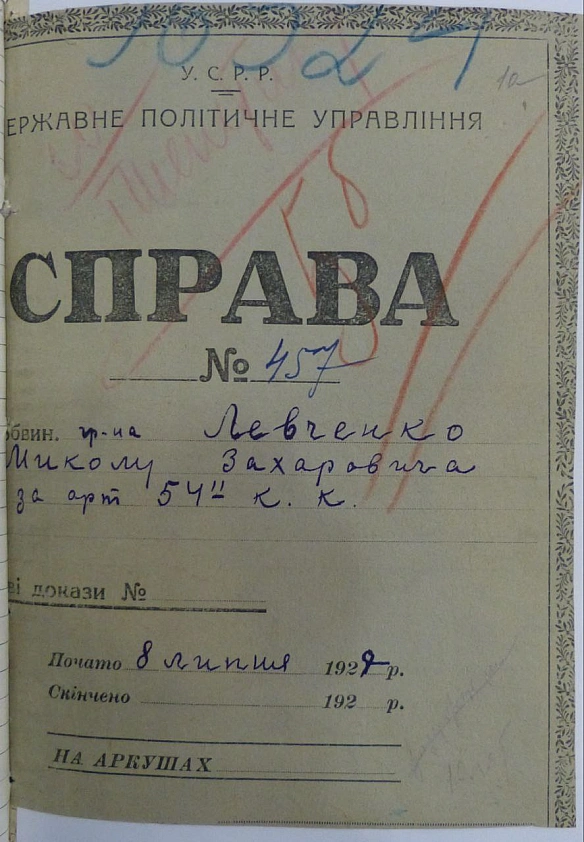 10324
1а
У. С. Р. Р.
ЕРЖАВНЕ ПОЛІТИЧНЕ УПРАВЛІННЯ
58
СПРАВА
№ 457
обвин. гр-на Левченко
Миколу Захаровича
за арт 54¹¹ К. К.
ві докази №
Почато 8 липня 1929 р.
Скінчено 192 р.
НА АРКУШАХ